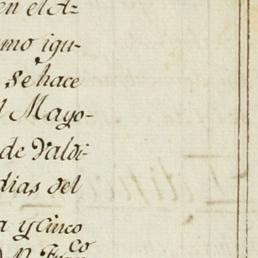 en el A-
mo igu-
se hace
l Mayo-
de Valdi-
dias del
a y Cinco
co